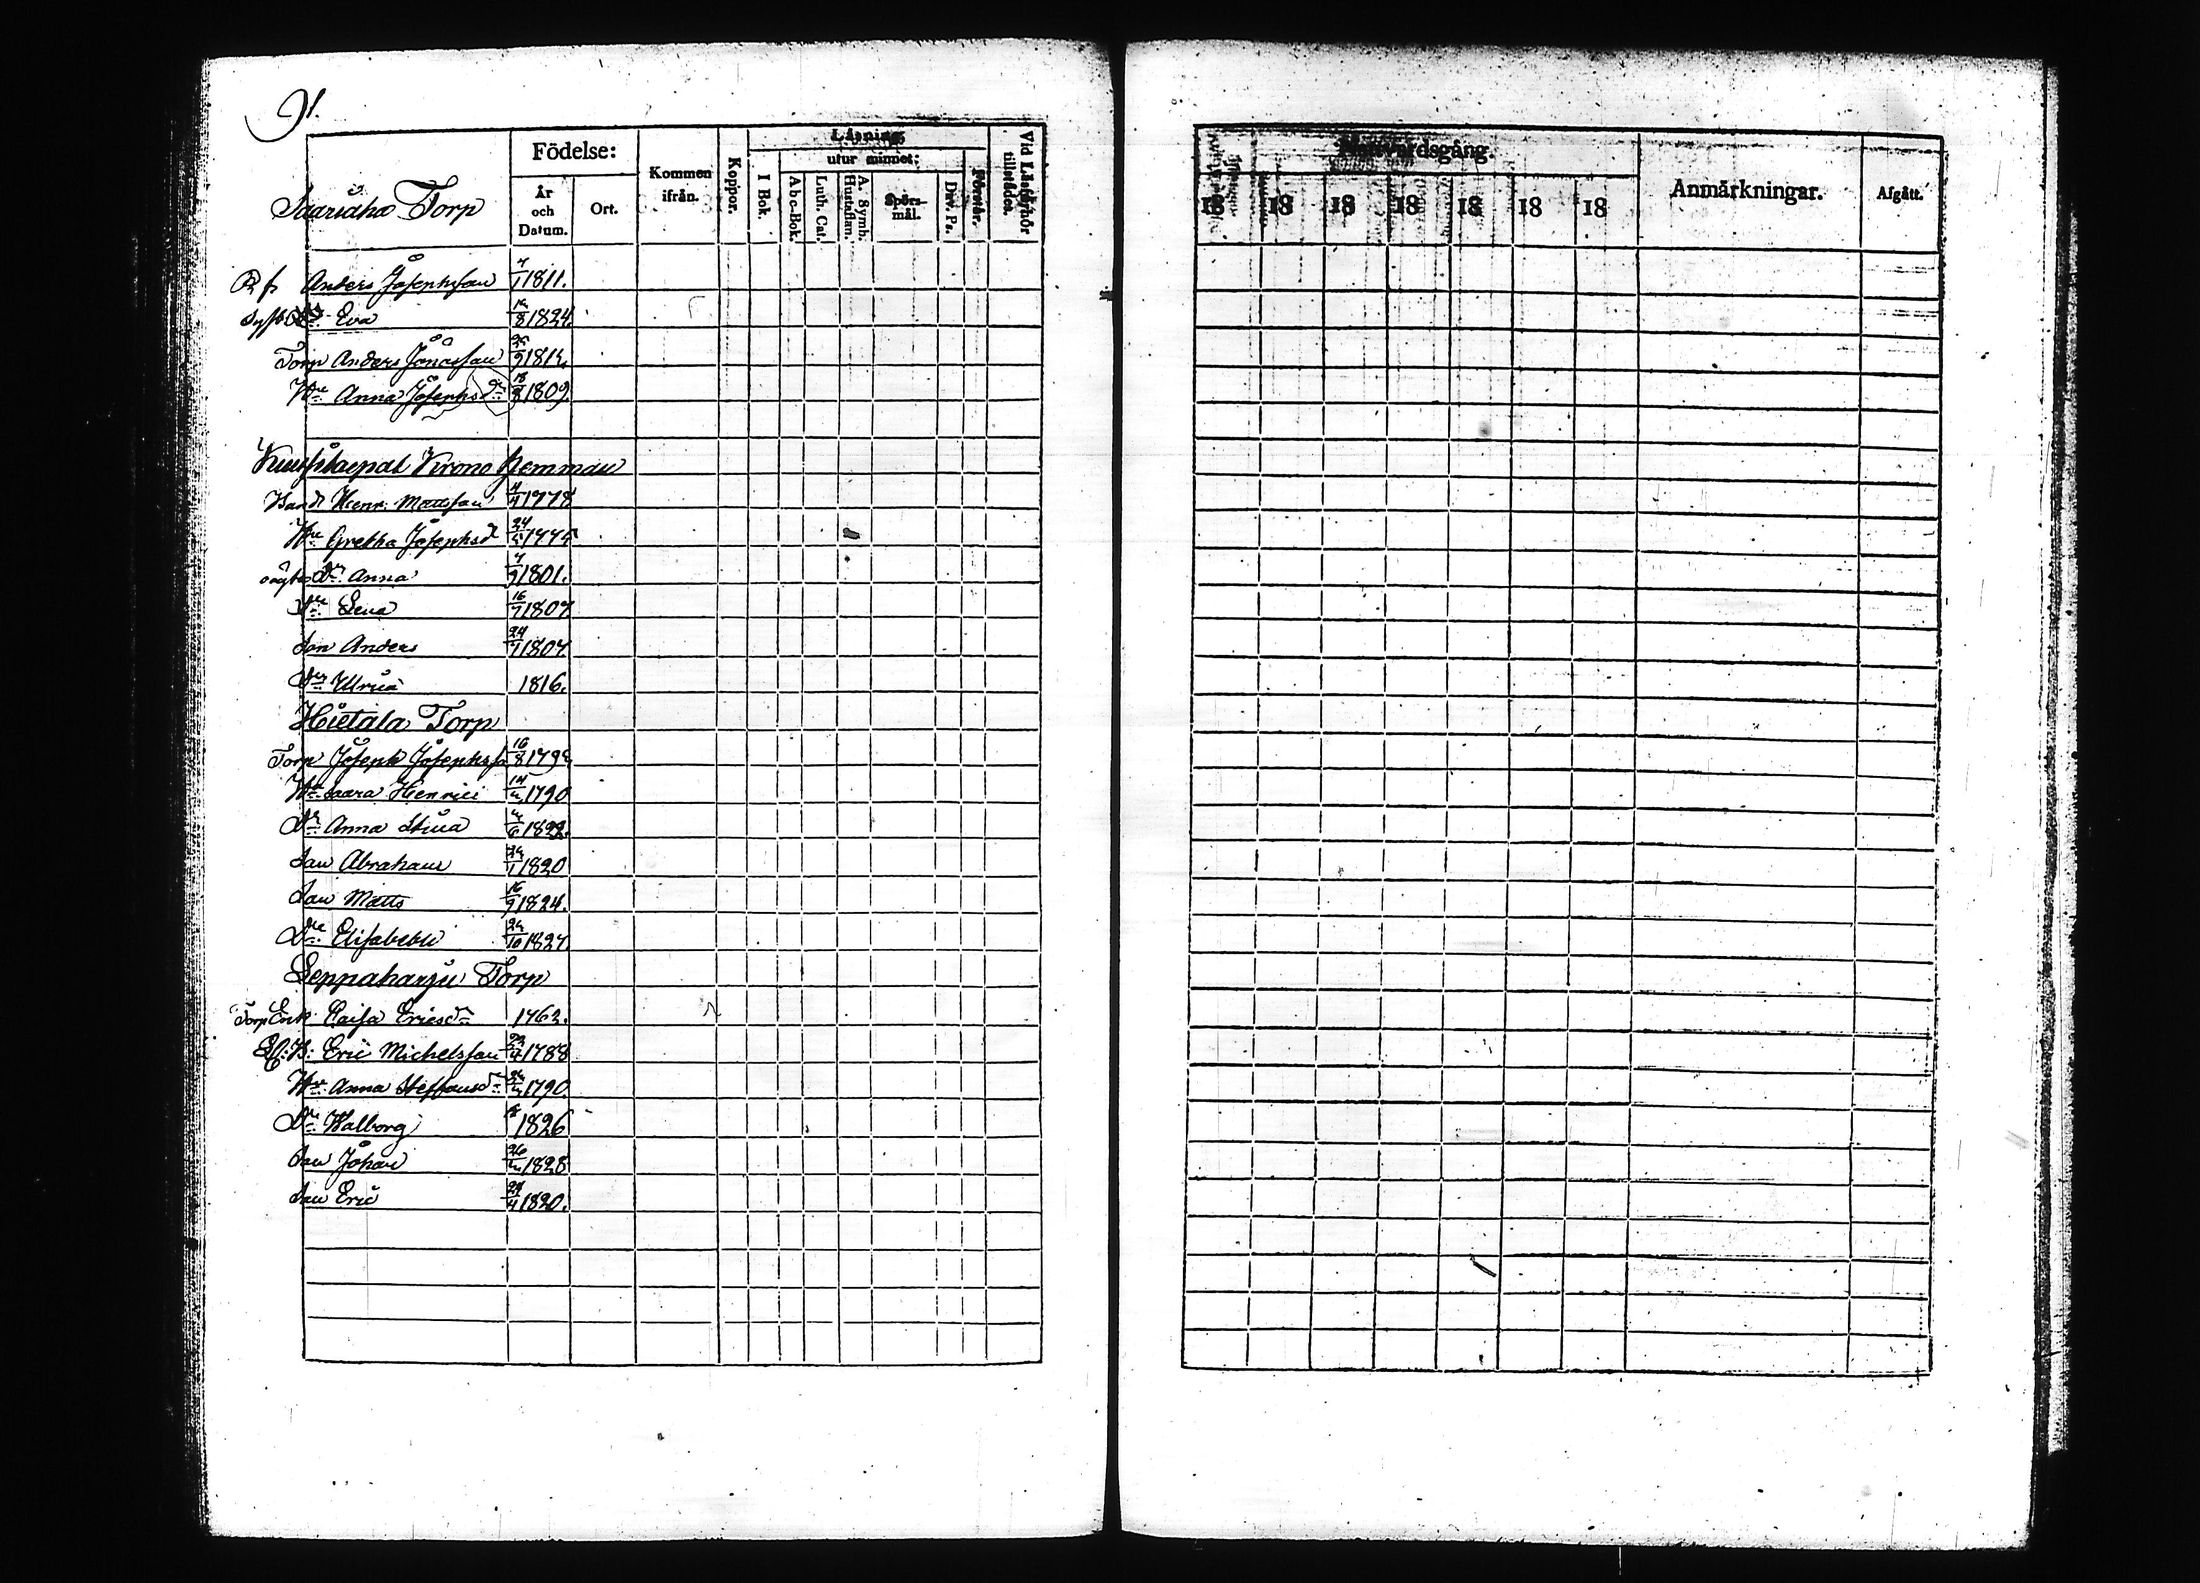 91.
Saariaho Torp
Födelse:
År och Datum.
Ort.
Kommen ifrån.
Koppor.
Läsning
utur minnet:
I Bok.
A b c-Bok.
Luth. Cat.
A. Symb. Hustaflan.
Spörs-mål.
Dav. Ps.
Förstår.
Vid Läsförhör tillstädes.
Anders Josephsson 7/1 1811.
Eva /8 1824.
Torp Anders Jonasson /9 181
Hru Anna Josephsdr 18/ 1809
Krono Hemman
Henr. Mattsson 4/4 1778
Hru Gretha Josephsd 24/ 177
Dr Anna 7/9 1801.
Dr Lena 16/7 1807
Son Anders 24/1 1807
Dr Ulrica 1816.
Hietala Torp
Torp Joseph Josephss 16/8 179
Hru Saara Henrici 14/ 1790
Dr Anna Stina /6 1822.
Son Abraham /1 1820
Son Matts 16/9 1824.
Dr Elisabeth /10 1827
Leppaharju Torp
Torp Enk Caisa Ericsdr 1762.
Eric Michelsson /4 1788
Hru Anna Steffansdr 1790
Dr Walborg 1826
Son Johan 26/ 1828
Son Eric /4 1820.
Nattvardsgång.
18 18 18 18 18 18 18
Anmärkningar.
Afgått.